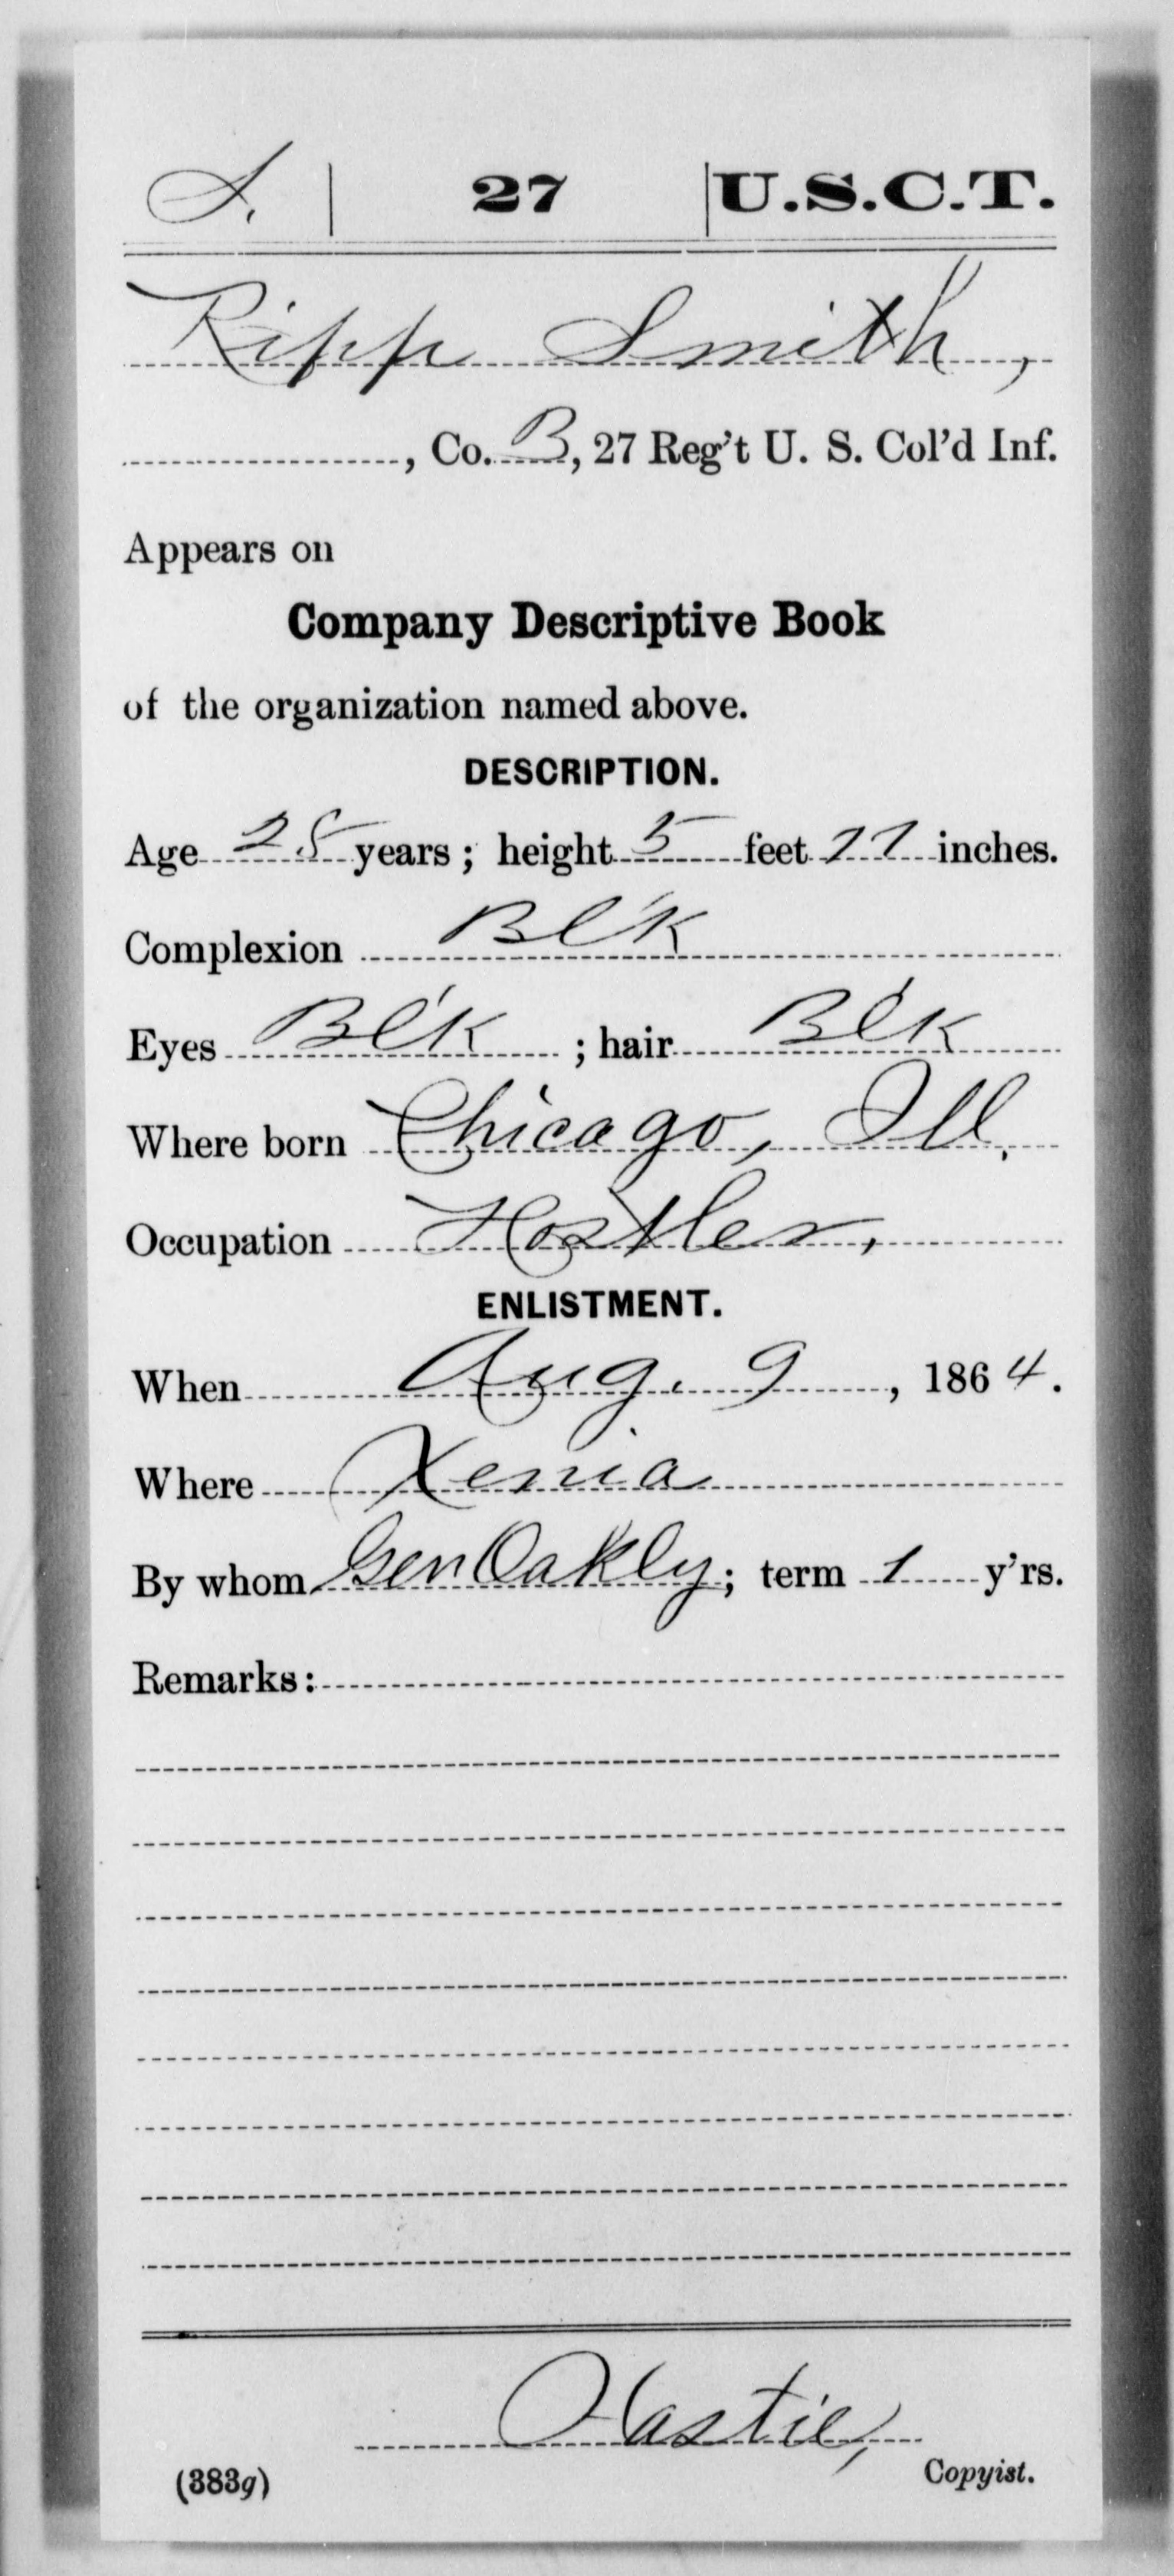 S. | 27 | U.S.C.T.
Ripp Smith,
, Co. B, 27 Reg't U. S. Col'd Inf.
Appears on
Company Descriptive Book
of the organization named above.
DESCRIPTION.
Age 25 years; height 5 feet 11 inches.
Complexion Bl'k
Eyes Bl'k ; hair Bl'k
Where born Chicago, Ill.
Occupation Hostler,
ENLISTMENT.
When Aug. 9, 1864.
Where Xenia
By whom Gen Oakly; term 1 y'rs.
Remarks:
Hastie,
(383g) Copyist.